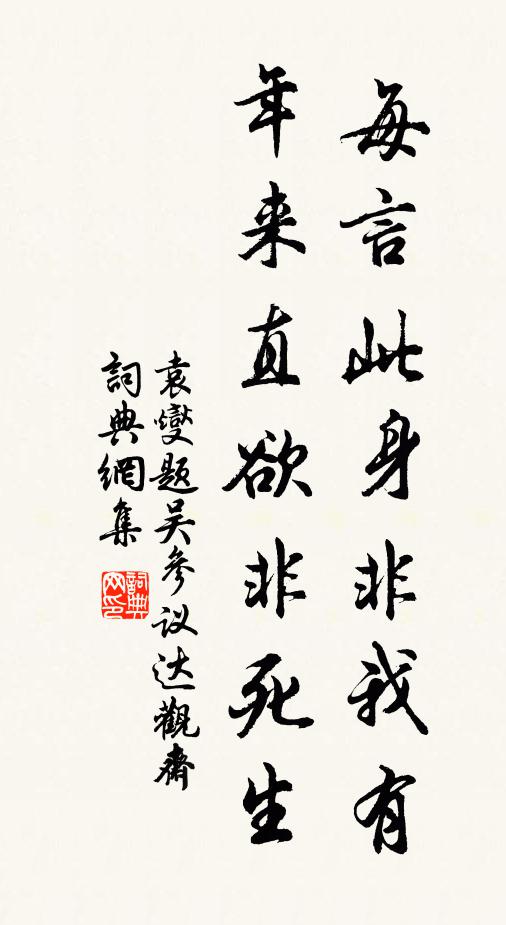 每言此身非我有
年来直欲非死生
袁燮題吴參议达觀齋
詞典網集
詞典网印